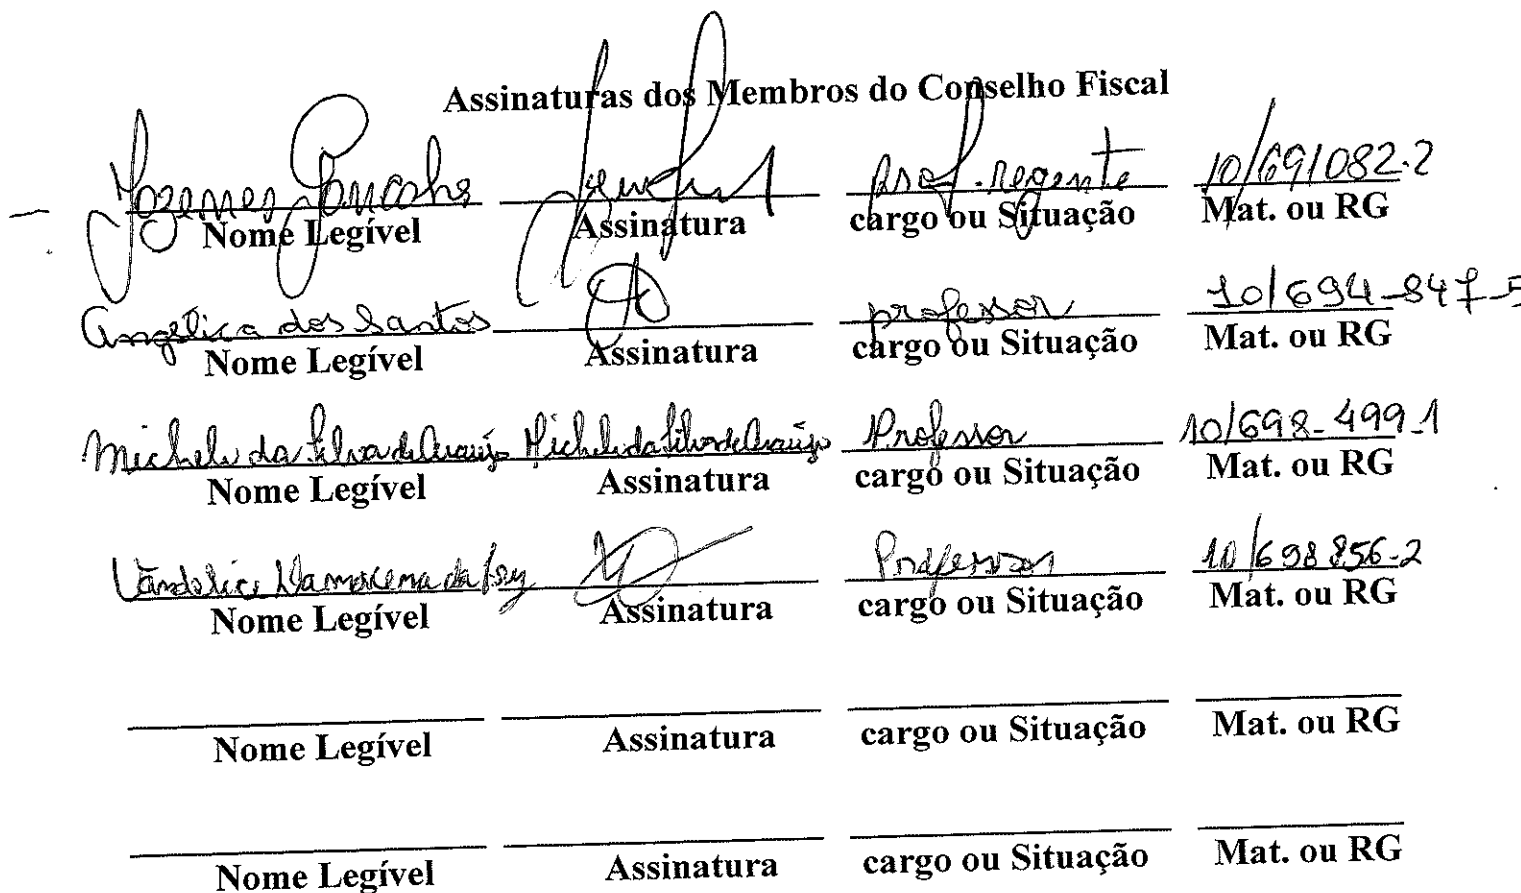 Assinaturas dos Membros do Conselho Fiscal
Jozemes prof. regente 10/691082-2
Nome Legível Assinatura cargo ou Situação Mat. ou RG
Angélica dos Santos professor 10/694-847-5
Nome Legível Assinatura cargo ou Situação Mat. ou RG
Michele da Silva de Araújo Michele da Silva de Araújo Professor 10/698-499-1
Nome Legível Assinatura cargo ou Situação Mat. ou RG
Professor 10/698856-2
Nome Legível Assinatura cargo ou Situação Mat. ou RG
Nome Legível Assinatura cargo ou Situação Mat. ou RG
Nome Legível Assinatura cargo ou Situação Mat. ou RG